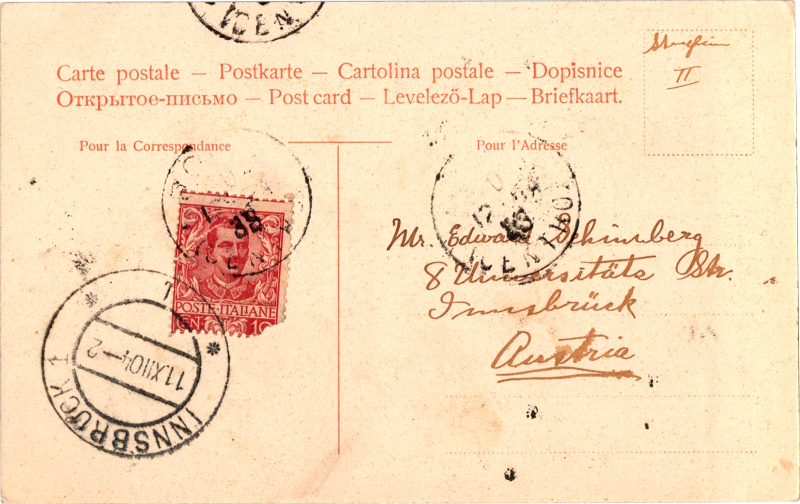 ICEN
II
Carte postale — Postkarte — Cartolina postale — Dopisnice
Открытое-письмо — Post card — Levelezö-Lap — Briefkaart.
Pour la Correspondance
Pour l'Adresse
POSTE·ITALIANE
Mr. Edward
8 Universitäts Str.
Innsbrück
Austria
INNSBRUCK 1
11.XII.04-2